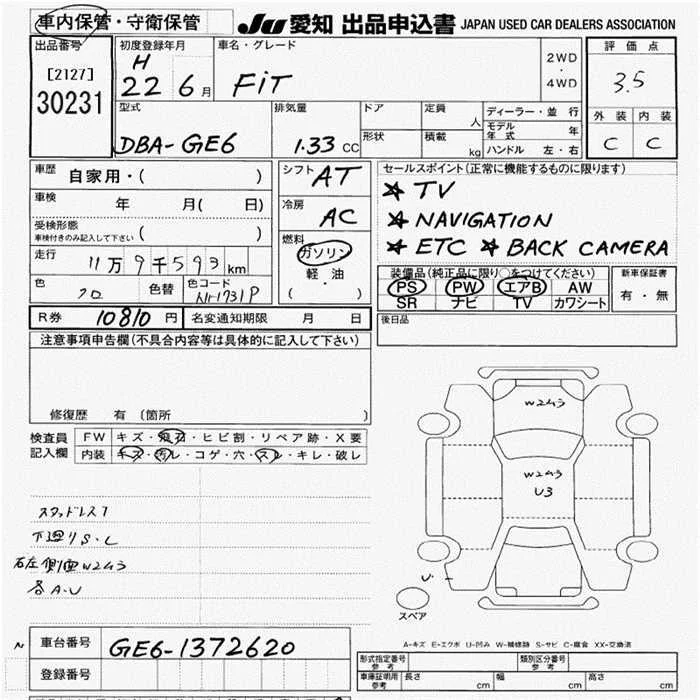 車内保管・守衛保管 JU 愛知 出品申込書 JAPAN USED CAR DEALERS ASSOCIATION
出品番号 初度登録年月 車名・グレード 2WD・4WD 評価点
[2127] H
30231 22 6月 FiT 3.5
型式 排気量 ドア 定員 人 ディーラー・並行 外装 内装
DBA-GE6 1.33 CC 形状 積載 kg モデル年式 年 C C
ハンドル 左・右
車歴 自家用・( ) シフト AT セールスポイント(正常に機能するものに限ります)
車検 年 月(日) 冷房 AC ★ TV
受検形態 ( ) ★ NAVIGATION
車検付きのみ記入して下さい 燃料 ガソリン ★ ETC ★ BACK CAMERA
走行 11万9千593km 軽油 ( )
装備品(純正品に限り○をつけてください) 新車保証書
色 クロ 色替 色コード NH731P PS PW エアB AW 有・無
SR ナビ TV カワシート
R券 10810 円 名変通知期限 月 日 後日品
注意事項申告欄(不具合内容等は具体的に記入して下さい)
修復歴 有 (箇所 )
検査員 FW キズ・飛石・ヒビ割・リペア跡・X要
記入欄 内装 キズ・汚レ・コゲ・穴・スレ・キレ・破レ
W2ムラ
W2ムラ
U3
スタッドレス1
下廻りS.L
右左側面W2ムラ
各A.U
U
スペア
A-キズ E-エクボ U-凹み W-補修跡 S-サビ C-腐食 XX-交換済
車台番号 GE6-1372620
登録番号
形式指定番号 参考 類別区分番号 参考
車庫証明用 参考 長さ cm 幅 cm 高さ cm